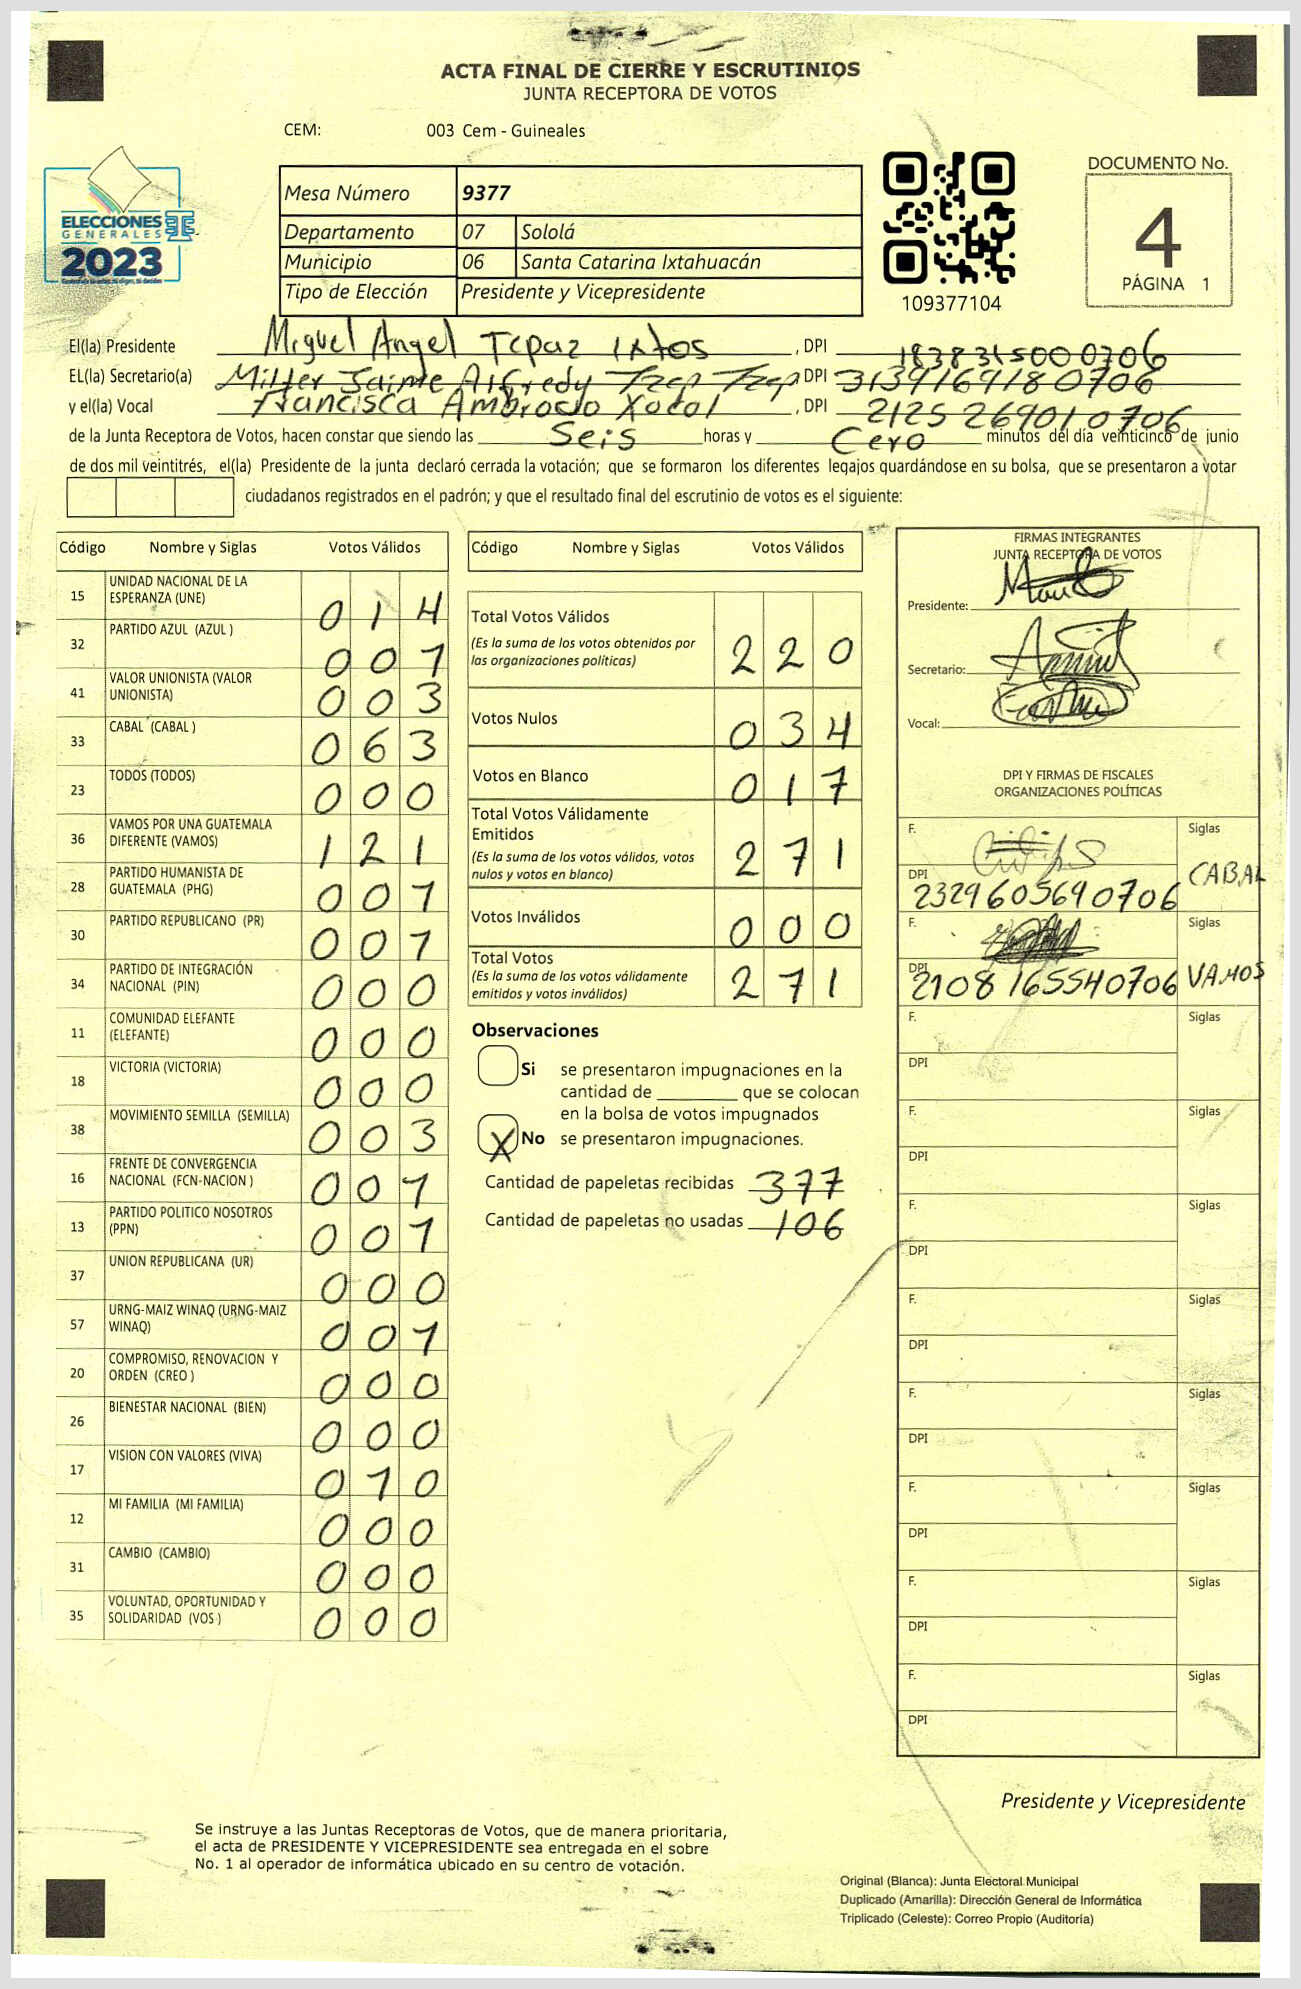 ACTA FINAL DE CIERRE Y ESCRUTINIOS
JUNTA RECEPTORA DE VOTOS
CEM: 003 Cem - Guineales
ELECCIONES
GENERALES
2023
Mesa Número 9377
Departamento 07 Sololá
Municipio 06 Santa Catarina Ixtahuacán
Tipo de Elección Presidente y Vicepresidente
109377104
DOCUMENTO No.
4
PÁGINA 1
El(la) Presidente Miguel Angel Tepaz Ixtos, DPI 1838315000706
EL(la) Secretario(a) Milfer Jaime Alfredy Tzep Tzep DPI 3139169180706
y el(la) Vocal Francisca Ambrocio Xocol, DPI 2125269010706
de la Junta Receptora de Votos, hacen constar que siendo las Seis horas y Cero minutos del día veinticinco de junio
de dos mil veintitrés, el(la) Presidente de la junta declaró cerrada la votación; que se formaron los diferentes legajos guardándose en su bolsa, que se presentaron a votar
ciudadanos registrados en el padrón; y que el resultado final del escrutinio de votos es el siguiente:
Código Nombre y Siglas Votos Válidos
15 UNIDAD NACIONAL DE LA ESPERANZA (UNE) 014
32 PARTIDO AZUL (AZUL ) 001
41 VALOR UNIONISTA (VALOR UNIONISTA) 003
33 CABAL (CABAL ) 063
23 TODOS (TODOS) 000
36 VAMOS POR UNA GUATEMALA DIFERENTE (VAMOS) 121
28 PARTIDO HUMANISTA DE GUATEMALA (PHG) 001
30 PARTIDO REPUBLICANO (PR) 001
34 PARTIDO DE INTEGRACIÓN NACIONAL (PIN) 000
11 COMUNIDAD ELEFANTE (ELEFANTE) 000
18 VICTORIA (VICTORIA) 000
38 MOVIMIENTO SEMILLA (SEMILLA) 003
16 FRENTE DE CONVERGENCIA NACIONAL (FCN-NACION ) 001
13 PARTIDO POLITICO NOSOTROS (PPN) 001
37 UNION REPUBLICANA (UR) 000
57 URNG-MAIZ WINAQ (URNG-MAIZ WINAQ) 001
20 COMPROMISO, RENOVACION Y ORDEN (CREO ) 000
26 BIENESTAR NACIONAL (BIEN) 000
17 VISION CON VALORES (VIVA) 010
12 MI FAMILIA (MI FAMILIA) 000
31 CAMBIO (CAMBIO) 000
35 VOLUNTAD, OPORTUNIDAD Y SOLIDARIDAD (VOS ) 000
Código Nombre y Siglas Votos Válidos
Total Votos Válidos 220
(Es la suma de los votos obtenidos por
las organizaciones políticas)
Votos Nulos 034
Votos en Blanco 017
Total Votos Válidamente
Emitidos 271
(Es la suma de los votos válidos, votos
nulos y votos en blanco)
Votos Inválidos 000
Total Votos 271
(Es la suma de los votos válidamente
emitidos y votos inválidos)
Observaciones
Si se presentaron impugnaciones en la
cantidad de ________ que se colocan
en la bolsa de votos impugnados
X No se presentaron impugnaciones.
Cantidad de papeletas recibidas 377
Cantidad de papeletas no usadas 106
FIRMAS INTEGRANTES
JUNTA RECEPTORA DE VOTOS
Presidente:
Secretario:
Vocal:
DPI Y FIRMAS DE FISCALES
ORGANIZACIONES POLÍTICAS
F. Siglas
DPI 2329605690706 CABAL
F. Siglas
DPI 2108165540706 VAMOS
F. Siglas
DPI
F. Siglas
DPI
F. Siglas
DPI
F. Siglas
DPI
F. Siglas
DPI
F. Siglas
DPI
F. Siglas
DPI
F. Siglas
DPI
Presidente y Vicepresidente
Se instruye a las Juntas Receptoras de Votos, que de manera prioritaria,
el acta de PRESIDENTE Y VICEPRESIDENTE sea entregada en el sobre
No. 1 al operador de informática ubicado en su centro de votación.
Original (Blanca): Junta Electoral Municipal
Duplicado (Amarilla): Dirección General de Informática
Triplicado (Celeste): Correo Propio (Auditoría)